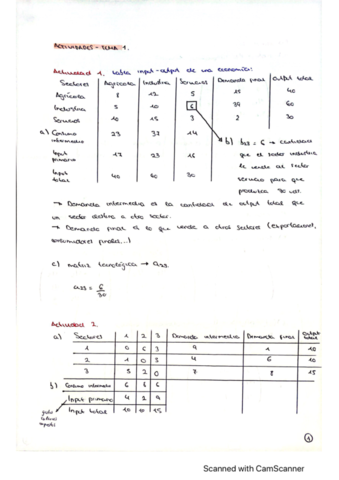 ACTIVIDADES - TEMA 1.
Actividad 1. tabla input-output de una economía:
Sectores Agrícola Industria Servicios Demanda final Output total
Agrícola 8 12 5 15 40
Industria 5 10 6 39 60
Servicios 10 15 3 2 30
a) Consumo intermedio 23 37 14
Input primario 17 23 16
Input total 40 60 30
b) b23 = 6 → cantidad
que el sector industria
le vende al sector
servicio para que
produzca 30 ust.
→ Demanda intermedia es la cantidad de output total que
un sector destina a otro sector.
→ Demanda final es lo que vende a otros sectores (exportaciones,
consumidores finales...)
c) matriz tecnológica → a23.
a23 = 6/30
Actividad 2.
a) Sectores 1 2 3 Demanda intermedia Demanda final Output total
1 0 6 3 9 1 10
2 1 0 3 4 6 10
3 5 2 0 7 8 15
b) Consumo intermedio 6 8 6
Input primario 4 2 9
Input total 10 10 15
1
Scanned with CamScanner